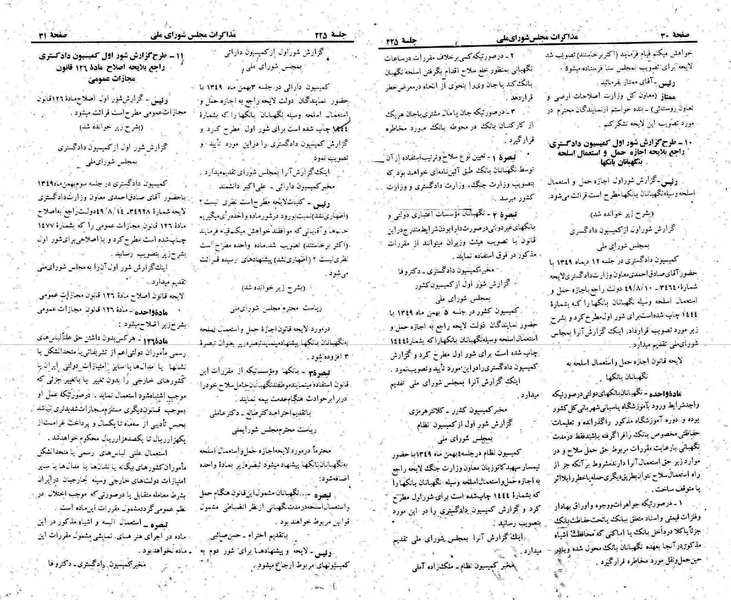 صفحهٔ ۳۰
مذاکرات مجلس شورای ملی
جلسهٔ ۲۲۵
خواهش میکنم قیام فرمایند (اکثر برخاستند) تصویب شد
لایحه برای تصویب بمجلس سنا فرستاده میشود
رئیس - آقای ممتاز بفرمائید.
ممتاز (معاون کل وزارت اصلاحات ارضی و
تعاون روستائی) - بنده خواستم از نمایندگان محترم در
مورد تصویب این لایحه تشکر کنم
۱۰ - طرح گزارش شور اول کمیسیون دادگستری
راجع بلایحه اجازه حمل و استعمال اسلحه
نگهبانان بانکها
رئیس - گزارش شور اول اجازه حمل و استعمال
اسلحه وسیله نگهبانان بانکها مطرح است قرائت میشود.
(بشرح زیر خوانده شد)
گزارش شور اول از کمیسیون دادگستری
بمجلس شورای ملی
کمیسیون دادگستری در جلسه ۱۲ دیماه ۱۳۴۹ با
حضور آقای صادق احمدی معاون وزارت دادگستری لایحه
شماره ۳۴۶۴۰ - ۴۹/۸/۱۰ دولت راجع به اجازه حمل و
استعمال اسلحه وسیله نگهبانان بانکها را که بشمارهٔ
۱۴۴۴ چاپ شده است برای شور اول مطرح کرد و بشرح
زیر مورد تصویب قرارداد. اینک گزارش آنرا بمجلس
شورای ملی تقدیم میدارد.
لایحه قانون اجازه حمل و استعمال اسلحه به
نگهبانان بانکها
ماده واحده - نگهبانان بانکهای دولتی در صورتیکه
واجد شرایط ورود بآموزشگاه پاسبانی شهربانی کل کشور
بوده و دوره آموزشگاه مذکور را گذرانده و تعلیمات
حفاظتی مخصوص بانک را فرا گرفته باشند فقط در مدت
نگهبانی با رعایت مقررات مربوط حق حمل سلاح و در
موارد زیر حق استعمال آنرا دارند مشروط بر آنکه جز از
راه استعمال سلاح نتوان بطریق دیگری حمله یا خطر را بلا اثر
یا متوقف ساخت.
۱ - در صورتیکه جواهرات و وجوه و اوراق بهادار
و فلزات قیمتی و اسناد متعلق ببانک یا تحت حفاظت بانک
جزئاً یا کلا در داخل بانک یا اماکنی که محافظت اشیاء
مذکور در آنجا بعهده نگهبانان بانک محول شده و یا در
حین حمل و نقل مورد مخاطره قرار گیرد
۲ - در صورتیکه کسی برخلاف مقررات در ساعات
نگهبانی بمنظور خلع سلاح اقدام بگرفتن اسلحه نگهبان
بانک کند یا جان ویرا بنحوی از انحاء در معرض خطر
قرار دهد.
۳ - در صورتیکه جان یا حال مشتری یا جان هر یک
از کارکنان بانک در محوطه بانک مورد مخاطره
قرار گیرد.
تبصرهٔ ۱ - تعیین نوع سلاح و ترتیب استفاده از آن
توسط نگهبانان بانک طبق آئین‌نامه‌ای خواهد بود که
بتصویب وزارت جنگ، وزارت دادگستری و وزارت
کشور میرسد.
تبصره ۲ - نگهبانان مؤسسات اعتباری دولتی و
بانکهای غیر دولتی در صورت دارا بودن شرایط مندرج در این
قانون با تصویب هیئت وزیران میتوانند از مقررات
مذکور در فوق استفاده نمایند.
مخبر کمیسیون دادگستری - دکتر وفا
گزارش شور اول از کمیسیون کشور
بمجلس شورای ملی
کمیسیون کشور در جلسه ۵ بهمن ماه ۱۳۴۹ با
حضور نمایندگان دولت لایحه راجع به اجازه حمل و
استعمال اسلحه وسیله نگهبانان بانکها را که بشماره ۱۴۴۴
چاپ شده است برای شور اول مطرح کرد و گزارش کمیسیون
دادگستری را در این مورد تأیید و تصویب نمود.
اینک گزارش آنرا بمجلس شورای ملی تقدیم
میدارد.
مخبر کمیسیون کشور - کلانتر هرمزی
گزارش شور اول از کمیسیون نظام
بمجلس شورای ملی
کمیسیون نظام در جلسه ۴ بهمن ماه ۱۳۴۹ با حضور
تیمسار سپهبد کاتوزیان معاون وزارت جنگ لایحه راجع به
اجازه حمل و استعمال اسلحه وسیله نگهبانان بانکها را
که بشماره ۱۴۴۴ چاپ شده است برای شور اول مطرح
کرد و گزارش کمیسیون دادگستری را در این مورد
بتصویب رسانید.
اینک گزارش آنرا بمجلس شورای ملی تقدیم
میدارد.
مخبر کمیسیون نظام - ملک زاده آملی
جلسهٔ ۲۲۵
مذاکرات مجلس شورای ملی
صفحهٔ ۳۱
گزارش شور اول از کمیسیون دارائی
بمجلس شورای ملی
کمیسیون دارائی در جلسه ۳ بهمن ماه ۱۳۴۹ با
حضور نمایندگان دولت لایحه راجع به اجازه حمل و
استعمال اسلحه وسیله نگهبانان بانکها را که بشمارهٔ
۱۴۴۴ چاپ شده است برای شور اول مطرح کرد و
گزارش کمیسیون دادگستری را در این مورد تأیید و
تصویب نمود
اینک گزارش آنرا بمجلس شورای ملی تقدیم میدارد.
مخبر کمیسیون دارائی - علی اکبر دانشمند
رئیس - کلیات لایحه مطرح است نظری نیست؟
(اظهاری نشد) نسبت بورود در شور ماده واحده رأی میگیریم
خانمها و آقایانی که موافقند خواهش میکنم قیام فرمایند
(اکثر برخاستند) تصویب شد. ماده واحده مطرح است
نظری نیست؟ (اظهاری نشد) پیشنهادهای رسیده قرائت
می‌شود.
(بشرح زیر خوانده شد)
ریاست محترم مجلس شورای ملی
در مورد لایحه قانون اجازهٔ حمل و استعمال اسلحه
نگهبانان بانکها پیشنهاد مینماید تبصره زیر بعنوان تبصرهٔ
۳ افزوده شود.
تبصره ۳ - بانکها و مؤسساتیکه از مقررات این
قانون استفاده مینمایند موظفند نگهبانان حامل سلاح خود را
در برابر حوادث هنگام خدمت بیمه نمایند.
با تقدیم احترام دکتر صالح - دکتر عاملی
ریاست محترم مجلس شورای ملی
محترماً در مورد لایحه اجازه حمل و استعمال اسلحه
نگهبانان بانکها پیشنهاد میشود تبصره زیر به ماده واحده
اضافه شود:
تبصره - نگهبانان مشمول این قانون هنگام حمل
و استعمال اسلحه در مدت نگهبانی از نظر انضباطی مشمول
قوانین مربوط خواهند بود.
با تقدیم احترام - حسن صائبی
رئیس - لایحه و پیشنهادها برای شور دوم به
کمیسیونهای مربوط ارجاع میشود.
۱۱ - طرح گزارش شور اول کمیسیون دادگستری
راجع بلایحه اصلاح مادهٔ ۱۲۶ قانون
مجازات عمومی
رئیس - گزارش شور اول اصلاح مادهٔ ۱۲۶ قانون
مجازات عمومی مطرح است قرائت میشود.
(بشرح زیر خوانده شد)
گزارش شور اول از کمیسیون دادگستری
بمجلس شورای ملی
کمیسیون دادگستری در جلسه سوم بهمن ماه ۱۳۴۹
با حضور آقای صادق احمدی معاون وزارت دادگستری
لایحه شمارهٔ ۳۴۹۲۸ - ۴۹/۸/۱۴ دولت راجع به اصلاح
مادهٔ ۱۲۶ قانون مجازات عمومی را که بشمارهٔ ۱۴۷۷
چاپ شده است مطرح کرد و با اصلاحی برای شور اول
بشرح زیر بتصویب رسانید.
اینک گزارش شور اول آن را به مجلس شورای ملی
تقدیم میدارد.
لایحه قانون اصلاح مادهٔ ۱۲۶ قانون مجازات عمومی
ماده واحده - مادهٔ ۱۲۶ قانون مجازات عمومی
بشرح زیر اصلاح میشود:
مادهٔ ۱۲۶ - هر کس بدون داشتن حق علناً لباسهای
رسمی مأموران دولتی اعم از تشریفاتی یا متحدالشکل یا
نشانها یا مدال‌ها یا سایر امتیازات دولتی ایران یا
کشورهای خارجی را بدون تغییر یا با تغییر جزئی که
موجب اشتباه شود استعمال نماید. در صورتیکه عمل او
بموجب قانون دیگری مستلزم مجازات شدیدتری نباشد
بحبس تأدیبی از سه ماه تا یکسال و پرداخت غرامت از
یکهزار ریال تا یکصد هزار ریال محکوم خواهد شد.
استعمال علنی لباس‌های رسمی یا متحدالشکل
مأموران کشورهای بیگانه یا نشان‌ها یا مدال‌ها یا سایر
امتیازات دولت‌های خارجی وسیله تبعهٔ خارجیان در ایران
بشرط معامله متقابل یا در صورتیکه موجب اختلال در
نظم عمومی گردد مشمول مقررات این ماده است.
تبصره - استعمال البسه و اشیاء مذکور در این
ماده در اجرای هنرهای نمایشی مشمول مقررات این
ماده نخواهد بود.
مخبر کمیسیون دادگستری - دکتر وفا